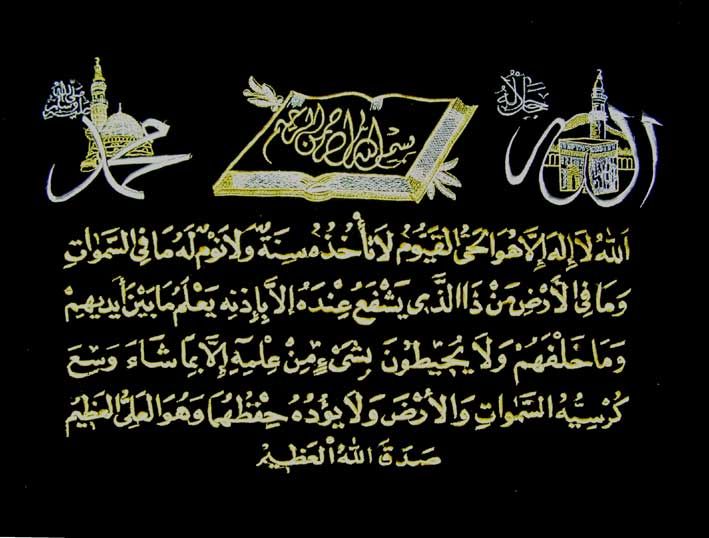 الله
جل جلاله
بسم الله الرحمن الرحيم
محمد
صلى الله عليه وسلم
اَللهُ لَا إِلٰهَ إِلَّا هُوَ الْحَيُّ الْقَيُّومُ لَا تَأْخُذُهُ سِنَةٌ وَلَا نَوْمٌ لَهُ مَا فِي السَّمٰوَاتِ
وَمَا فِي الْأَرْضِ مَنْ ذَا الَّذِي يَشْفَعُ عِنْدَهُ إِلَّا بِإِذْنِهِ يَعْلَمُ مَا بَيْنَ أَيْدِيهِمْ
وَمَا خَلْفَهُمْ وَلَا يُحِيطُونَ بِشَيْءٍ مِنْ عِلْمِهِ إِلَّا بِمَا شَاءَ وَسِعَ
كُرْسِيُّهُ السَّمٰوَاتِ وَالْأَرْضَ وَلَا يَؤُدُهُ حِفْظُهُمَا وَهُوَ الْعَلِيُّ الْعَظِيمُ
صَدَقَ اللهُ الْعَظِيمُ